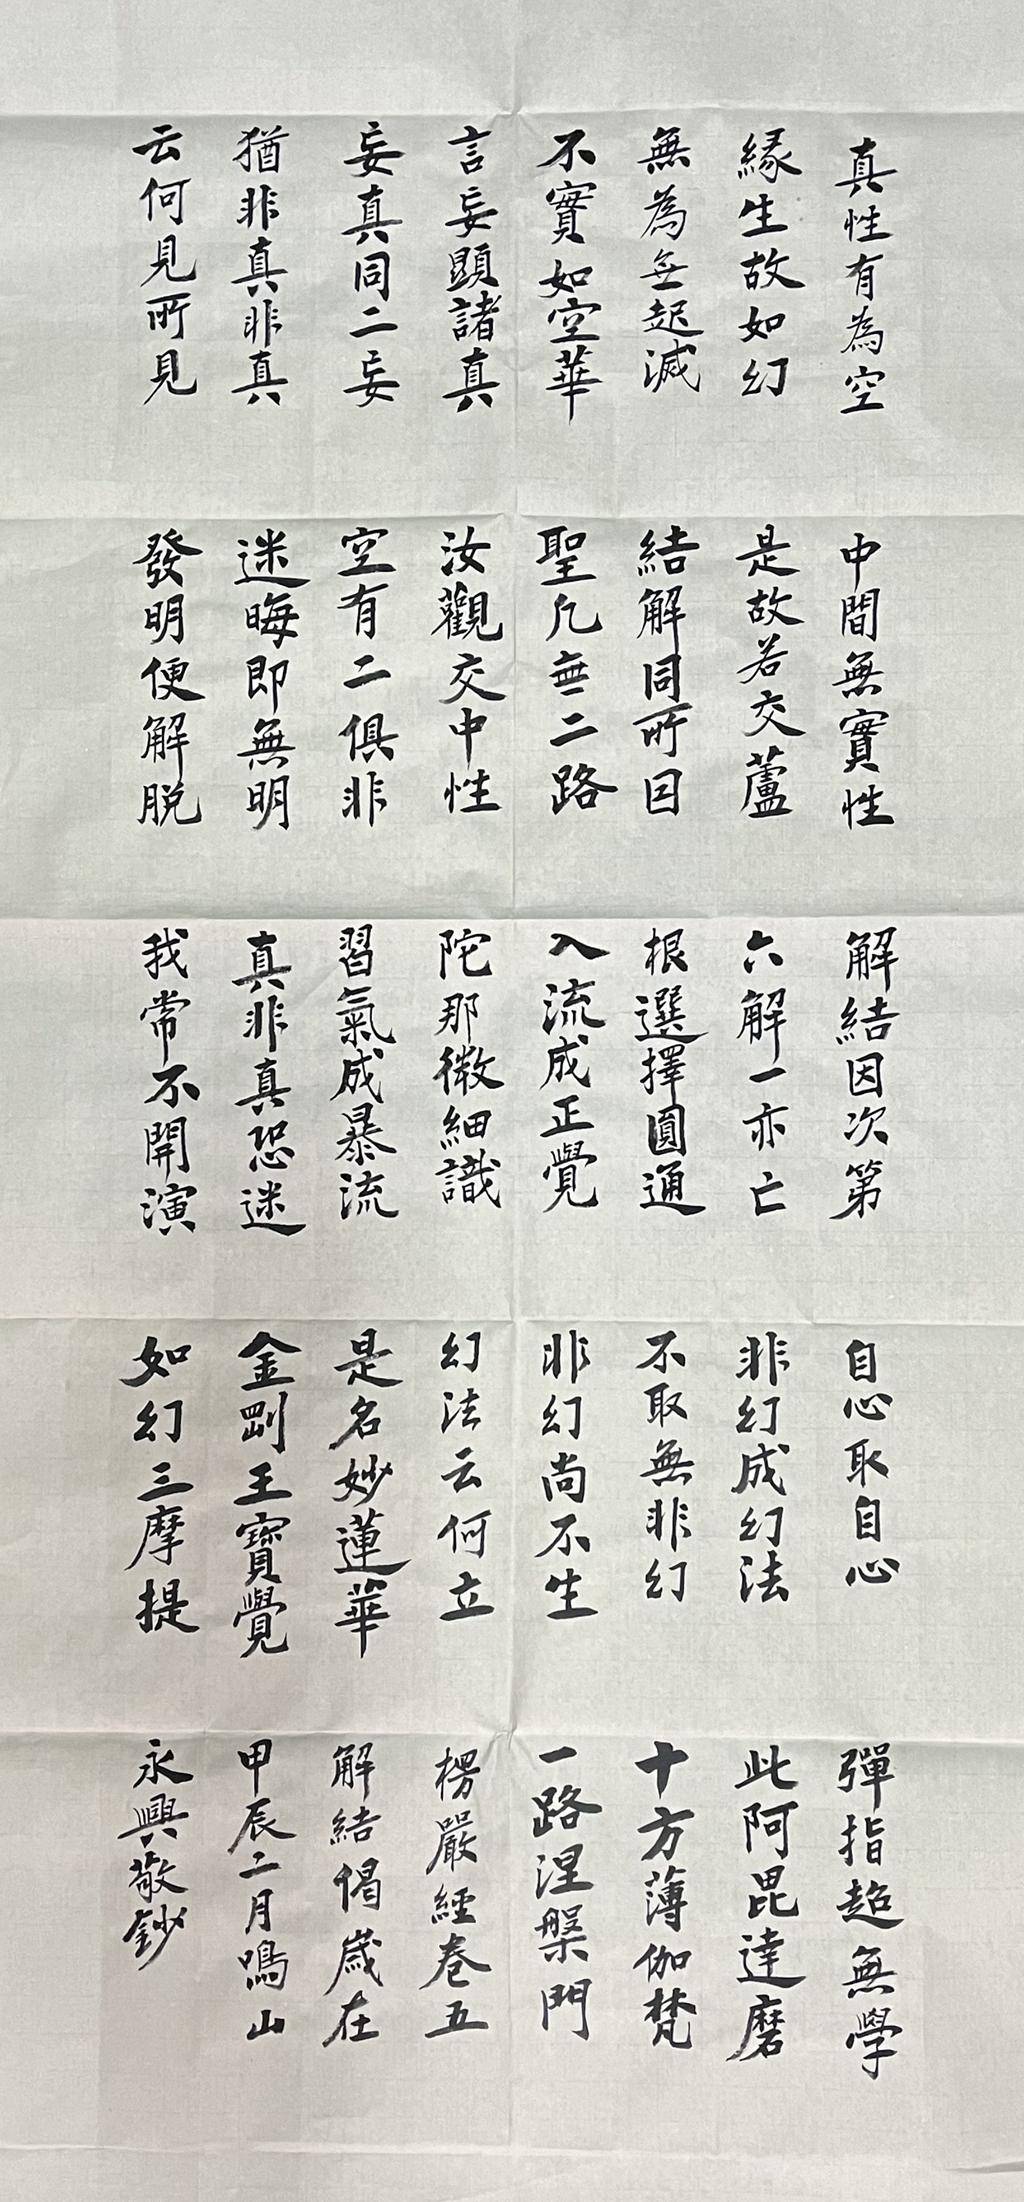 真性有為空
緣生故如幻
無為無起滅
不實如空華
言妄顯諸真
妄真同二妄
猶非真非真
云何見所見
中間無實性
是故若交蘆
結解同所因
聖凡無二路
汝觀交中性
空有二俱非
迷晦即無明
發明便解脫
解結因次第
六解一亦亡
根選擇圓通
入流成正覺
陀那微細識
習氣成暴流
真非真恐迷
我常不開演
自心取自心
非幻成幻法
不取無非幻
非幻尚不生
幻法云何立
是名妙蓮華
金剛王寶覺
如幻三摩提
彈指超無學
此阿毘達磨
十方薄伽梵
一路涅槃門
楞嚴經卷五
解結偈歲在
甲辰二月鳴山
永興敬鈔